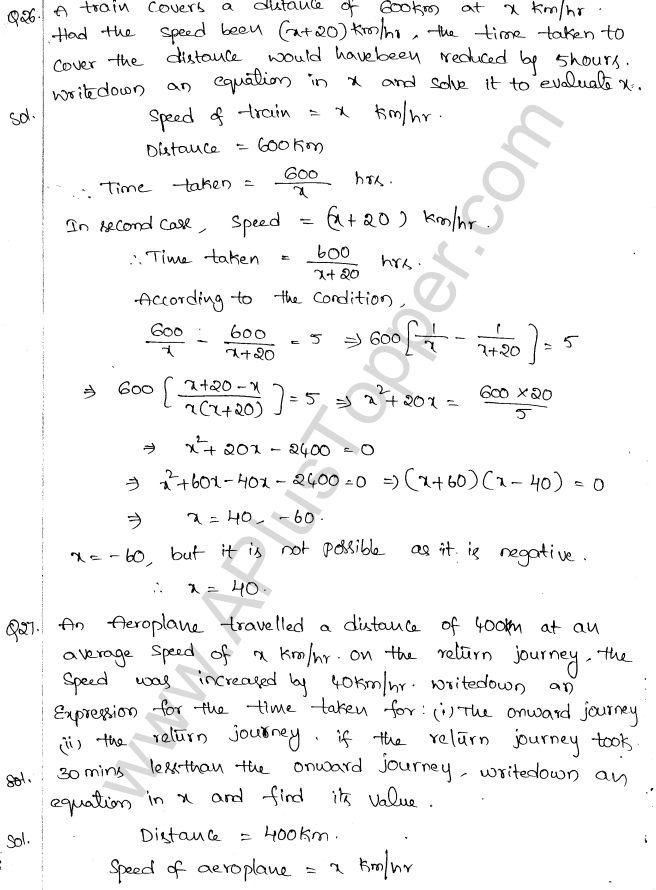 Q26. A train covers a distance of 600km at x km/hr.
Had the speed been (x+20)km/hr, the time taken to
cover the distance would havebeen reduced by 5hours.
writedown an equation in x and solve it to evaluate x.
Sol. Speed of train = x km/hr.
Distance = 600km
∴ Time taken = 600/x hrs.
In second case, speed = (x+20) km/hr.
∴ Time taken = 600/x+20 hrs.
According to the condition,
600/x - 600/x+20 = 5 ⇒ 600[1/x - 1/x+20] = 5
⇒ 600[x+20-x/x(x+20)] = 5 ⇒ x²+20x = 600×20/5
⇒ x²+20x-2400=0
⇒ x²+60x-40x-2400=0 ⇒ (x+60)(x-40) = 0
⇒ x=40, -60.
x=-60, but it is not possible as it is negative.
∴ x = 40.
Q27. An Aeroplane travelled a distance of 400km at an
average speed of x km/hr. on the return journey, the
speed was increased by 40km/hr. writedown an
Expression for the time taken for: (i) The onward journey
(ii) the return journey. if the return journey took
sol. 30mins lessthan the onward journey, writedown an
equation in x and find its value.
Sol. Distance = 400km.
Speed of aeroplane = x km/hr
www.APlusTopper.com